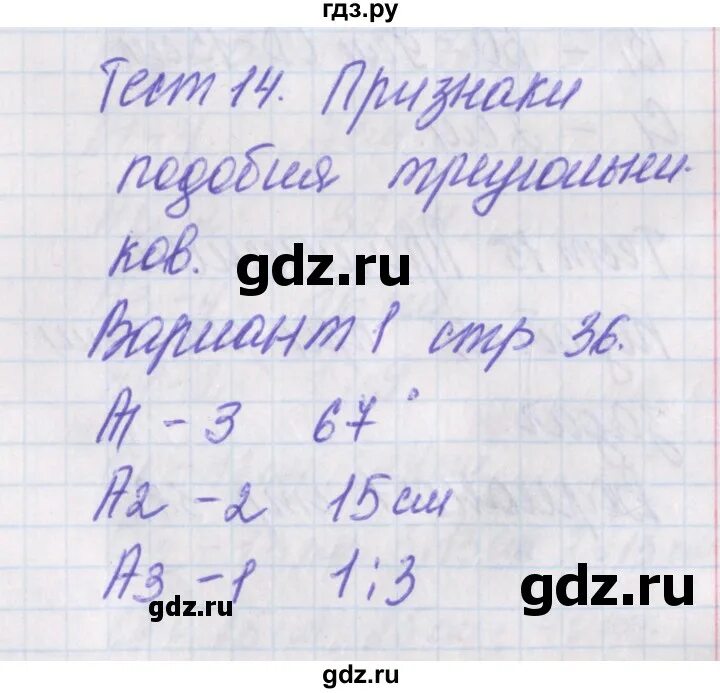 гдз.ру
Тест 14. Признаки
подобия треугольни-
ков.
gdz.ru
Вариант 1 стр 36.
А1 - 3 67°
А2 - 2 15 см
А3 - 1 1:3
gdz.ru
gdz.ru
gdz.ru